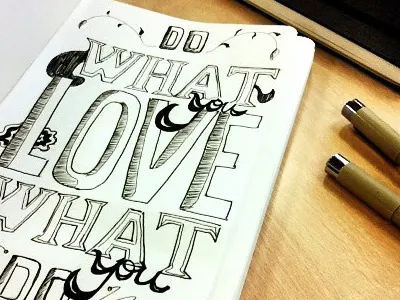 DO
WHAT
you
LOVE
WHAT
you
DO